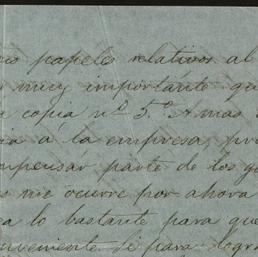 papeles relativos al
muy importante que
copia nº 5.º A mas
á la empresa, pro
mpensar parte de los ga
me ocurre por ahora
a lo bastante para que
nveniente si para logra